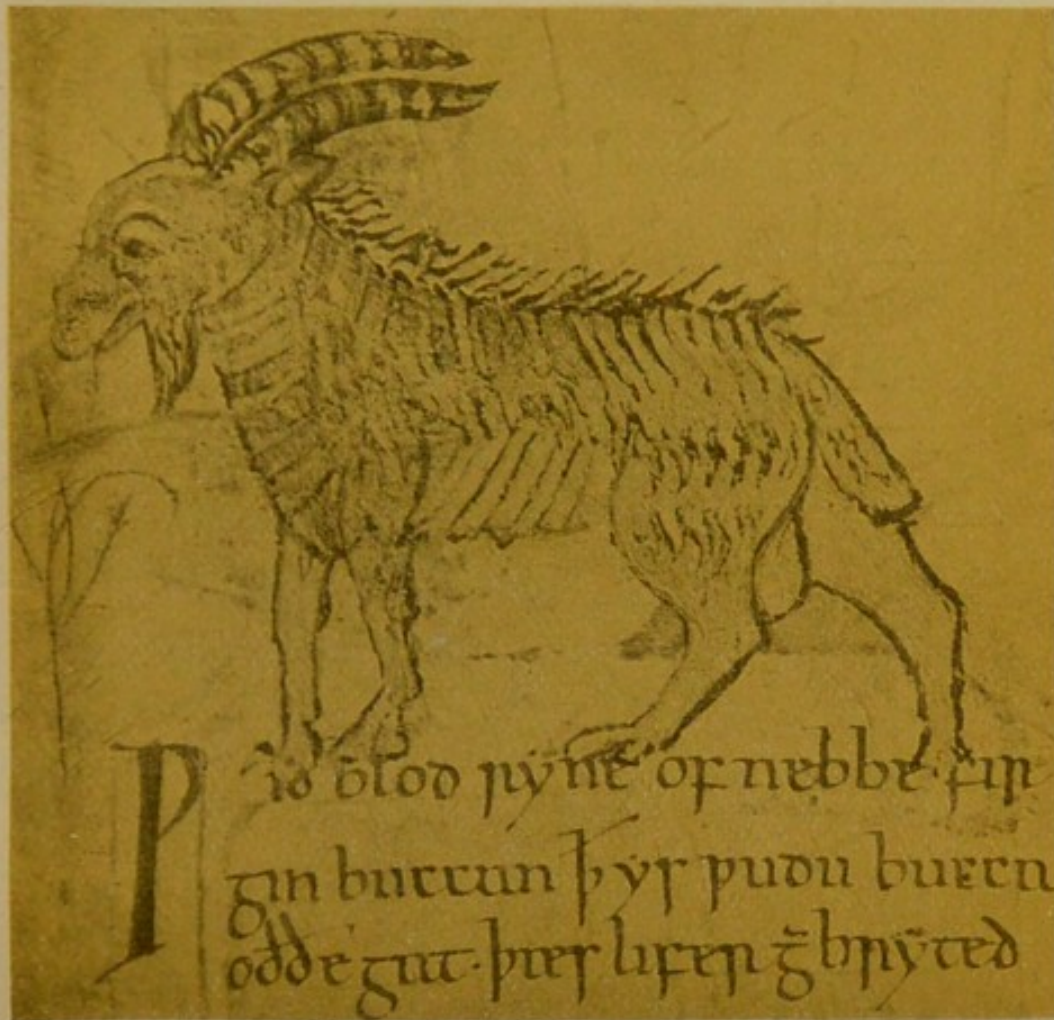 Ƿið blod ryne of nebbe fir
gin buccan ꝥ ys ƿudu bucca
oððe gat· þæs lifer ḡbryted